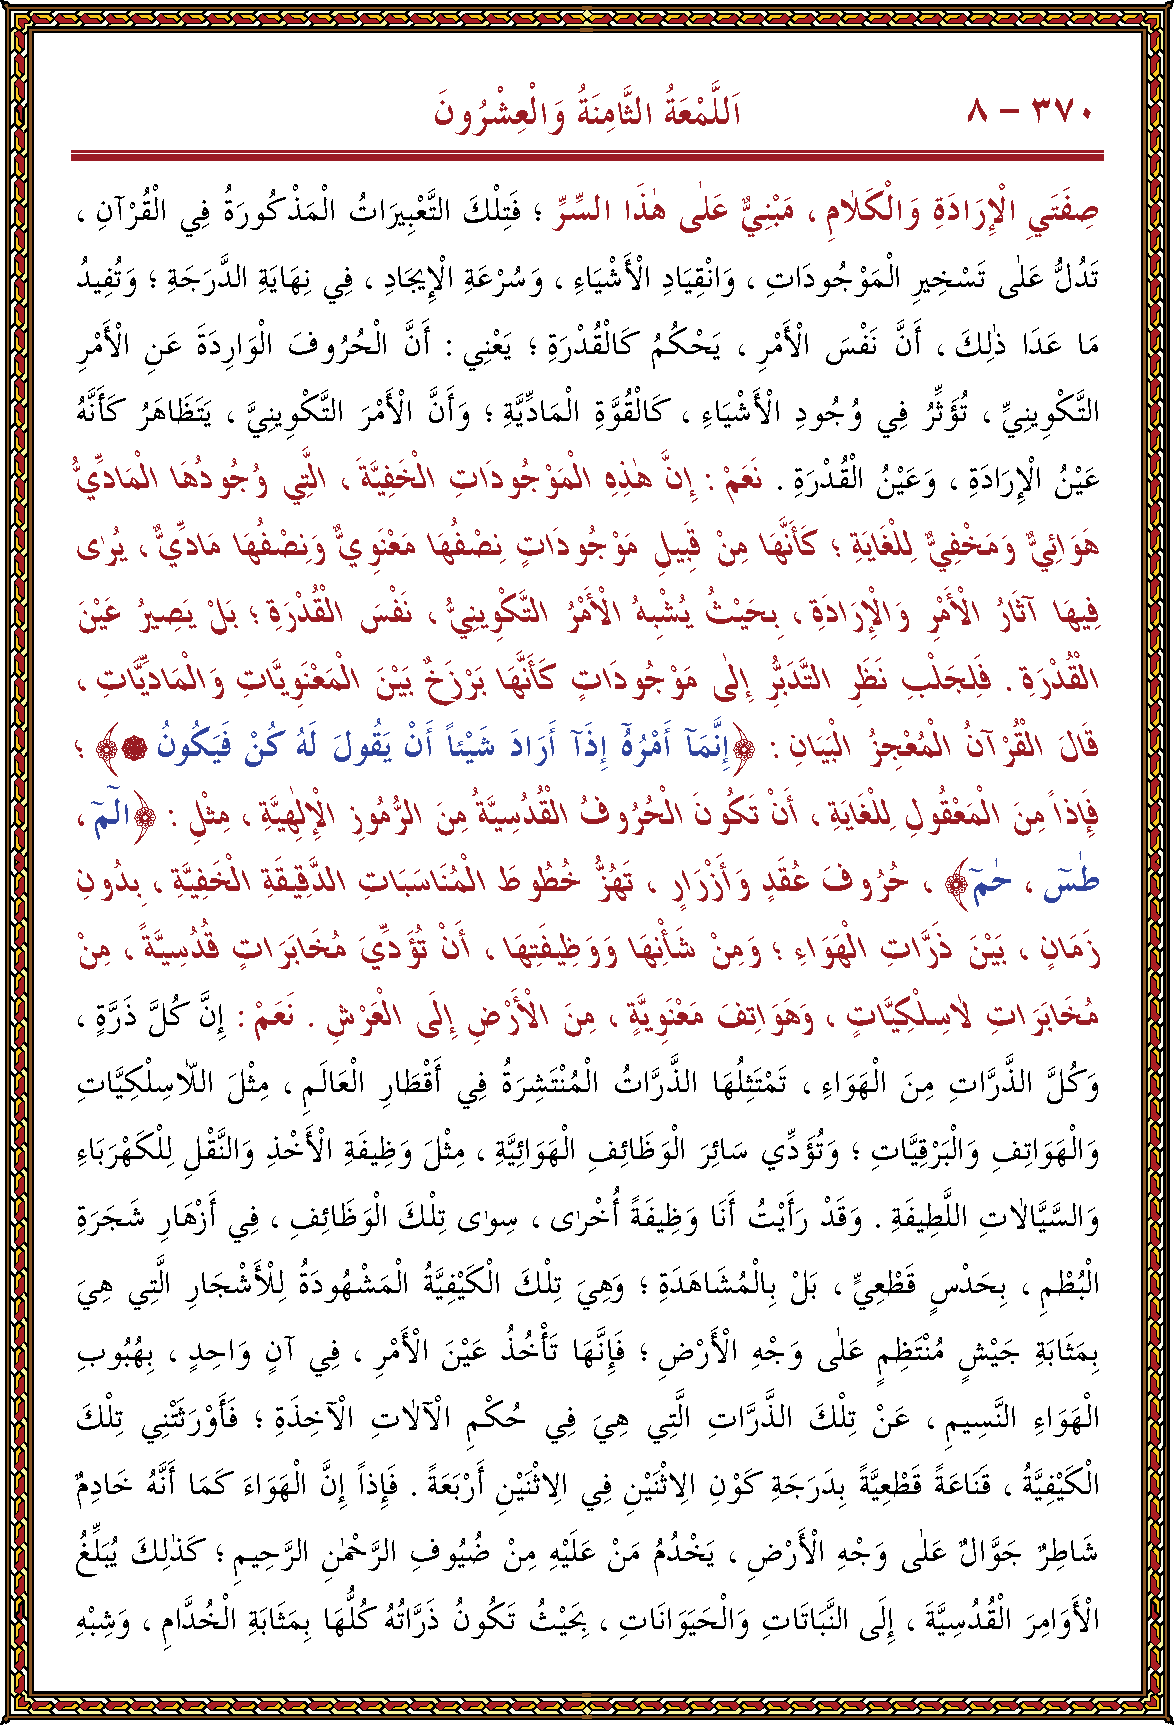 ٣٧٠ – ٨ اَللَّمْعَةُ الثَّامِنَةُ وَالْعِشْرُونَ
صِفَتَيِ الْإِرَادَةِ وَالْكَلَامِ ، مَبْنِيٌّ عَلٰى هٰذَا السِّرِّ ؛ فَتِلْكَ التَّعْبِيرَاتُ الْمَذْكُورَةُ فِي الْقُرْآنِ ،
تَدُلُّ عَلٰى تَسْخِيرِ الْمَوْجُودَاتِ ، وَانْقِيَادِ الْأَشْيَاءِ ، وَسُرْعَةِ الْإِيجَادِ ، فِي نِهَايَةِ الدَّرَجَةِ ؛ وَتُفِيدُ
مَا عَدَا ذٰلِكَ ، أَنَّ نَفْسَ الْأَمْرِ ، يَحْكُمُ كَالْقُدْرَةِ ؛ يَعْنِي : أَنَّ الْحُرُوفَ الْوَارِدَةَ عَنِ الْأَمْرِ
التَّكْوِينِيِّ ، تُؤَثِّرُ فِي وُجُودِ الْأَشْيَاءِ ، كَالْقُوَّةِ الْمَادِّيَّةِ ؛ وَأَنَّ الْأَمْرَ التَّكْوِينِيَّ ، يَتَظَاهَرُ كَأَنَّهُ
عَيْنُ الْإِرَادَةِ ، وَعَيْنُ الْقُدْرَةِ . نَعَمْ : إِنَّ هٰذِهِ الْمَوْجُودَاتِ الْخَفِيَّةَ ، الَّتِي وُجُودُهَا الْمَادِّيُّ
هَوَائِيٌّ وَمَخْفِيٌّ لِلْغَايَةِ ؛ كَأَنَّهَا مِنْ قَبِيلِ مَوْجُودَاتٍ نِصْفُهَا مَعْنَوِيٌّ وَنِصْفُهَا مَادِّيٌّ ، يُرٰى
فِيهَا آثَارُ الْأَمْرِ وَالْإِرَادَةِ ، بِحَيْثُ يُشْبِهُ الْأَمْرُ التَّكْوِينِيُّ ، نَفْسَ الْقُدْرَةِ ؛ بَلْ يَصِيرُ عَيْنَ
الْقُدْرَةِ . فَلِجَلْبِ نَظَرِ التَّدَبُّرِ إِلٰى مَوْجُودَاتٍ كَأَنَّهَا بَرْزَخٌ بَيْنَ الْمَعْنَوِيَّاتِ وَالْمَادِّيَّاتِ ،
قَالَ الْقُرْآنُ الْمُعْجِزُ الْبَيَانِ : ﴿إِنَّمَآ أَمْرُهُٓ إِذَآ أَرَادَ شَيْئاً أَنْ يَقُولَ لَهُ كُنْ فَيَكُونُ ۝﴾ ؛
فَإِذاً مِنَ الْمَعْقُولِ لِلْغَايَةِ ، أَنْ تَكُونَ الْحُرُوفُ الْقُدْسِيَّةُ مِنَ الرُّمُوزِ الْإِلٰهِيَّةِ ، مِثْلِ : ﴿الٓمٓ ،
طٰسٓ ، حٰمٓ﴾ ، حُرُوفَ عُقَدٍ وَأَزْرَارٍ ، تَهُزُّ خُطُوطَ الْمُنَاسَبَاتِ الدَّقِيقَةِ الْخَفِيَّةِ ، بِدُونِ
زَمَانٍ ، بَيْنَ ذَرَّاتِ الْهَوَاءِ ؛ وَمِنْ شَأْنِهَا وَوَظِيفَتِهَا ، أَنْ تُؤَدِّيَ مُخَابَرَاتٍ قُدُسِيَّةً ، مِنْ
مُخَابَرَاتِ لَاسِلْكِيَّاتٍ ، وَهَوَاتِفَ مَعْنَوِيَّةٍ ، مِنَ الْأَرْضِ إِلَى الْعَرْشِ . نَعَمْ : إِنَّ كُلَّ ذَرَّةٍ ،
وَكُلَّ الذَّرَّاتِ مِنَ الْهَوَاءِ ، تَمْتَثِلُهَا الذَّرَّاتُ الْمُنْتَشِرَةُ فِي أَقْطَارِ الْعَالَمِ ، مِثْلَ اللَّاسِلْكِيَّاتِ
وَالْهَوَاتِفِ وَالْبَرْقِيَّاتِ ؛ وَتُؤَدِّي سَائِرَ الْوَظَائِفِ الْهَوَائِيَّةِ ، مِثْلَ وَظِيفَةِ الْأَخْذِ وَالنَّقْلِ لِلْكَهْرَبَاءِ
وَالسَّيَّالَاتِ اللَّطِيفَةِ . وَقَدْ رَأَيْتُ أَنَا وَظِيفَةً أُخْرٰى ، سِوٰى تِلْكَ الْوَظَائِفِ ، فِي أَزْهَارِ شَجَرَةِ
الْبُطْمِ ، بِحَدْسٍ قَطْعِيٍّ ، بَلْ بِالْمُشَاهَدَةِ ؛ وَهِيَ تِلْكَ الْكَيْفِيَّةُ الْمَشْهُودَةُ لِلْأَشْجَارِ الَّتِي هِيَ
بِمَثَابَةِ جَيْشٍ مُنْتَظِمٍ عَلٰى وَجْهِ الْأَرْضِ ؛ فَإِنَّهَا تَأْخُذُ عَيْنَ الْأَمْرِ ، فِي آنٍ وَاحِدٍ ، بِهُبُوبِ
الْهَوَاءِ النَّسِيمِ ، عَنْ تِلْكَ الذَّرَّاتِ الَّتِي هِيَ فِي حُكْمِ الْآلَاتِ الْآخِذَةِ ؛ فَأَوْرَثَتْنِي تِلْكَ
الْكَيْفِيَّةُ ، قَنَاعَةً قَطْعِيَّةً بِدَرَجَةِ كَوْنِ الِاثْنَيْنِ فِي الِاثْنَيْنِ أَرْبَعَةً . فَإِذاً إِنَّ الْهَوَاءَ كَمَا أَنَّهُ خَادِمٌ
شَاطِرٌ جَوَّالٌ عَلٰى وَجْهِ الْأَرْضِ ، يَخْدُمُ مَنْ عَلَيْهِ مِنْ ضُيُوفِ الرَّحْمٰنِ الرَّحِيمِ ؛ كَذٰلِكَ يُبَلِّغُ
الْأَوَامِرَ الْقُدُسِيَّةَ ، إِلَى النَّبَاتَاتِ وَالْحَيَوَانَاتِ ، بِحَيْثُ تَكُونُ ذَرَّاتُهُ كُلُّهَا بِمَثَابَةِ الْخُدَّامِ ، وَشِبْهِ